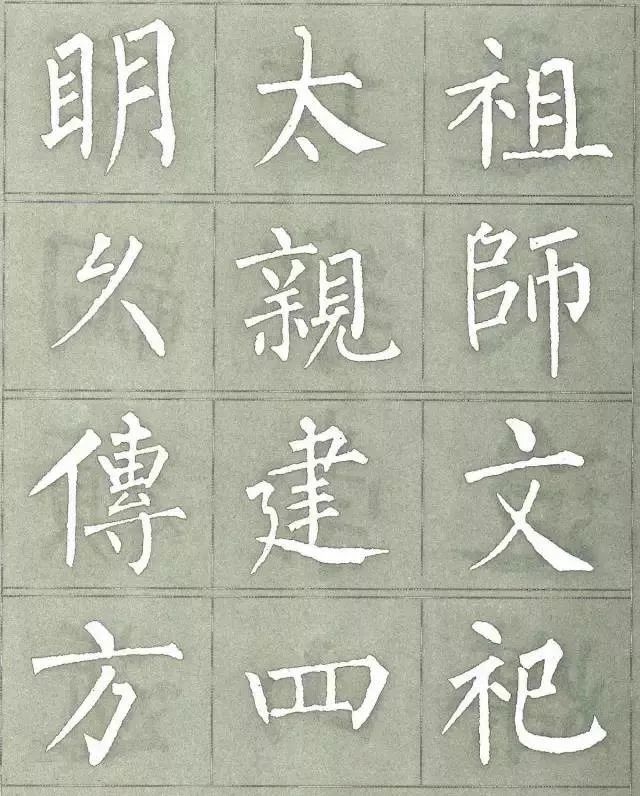 明太祖
久親師
傳建文
方四祀